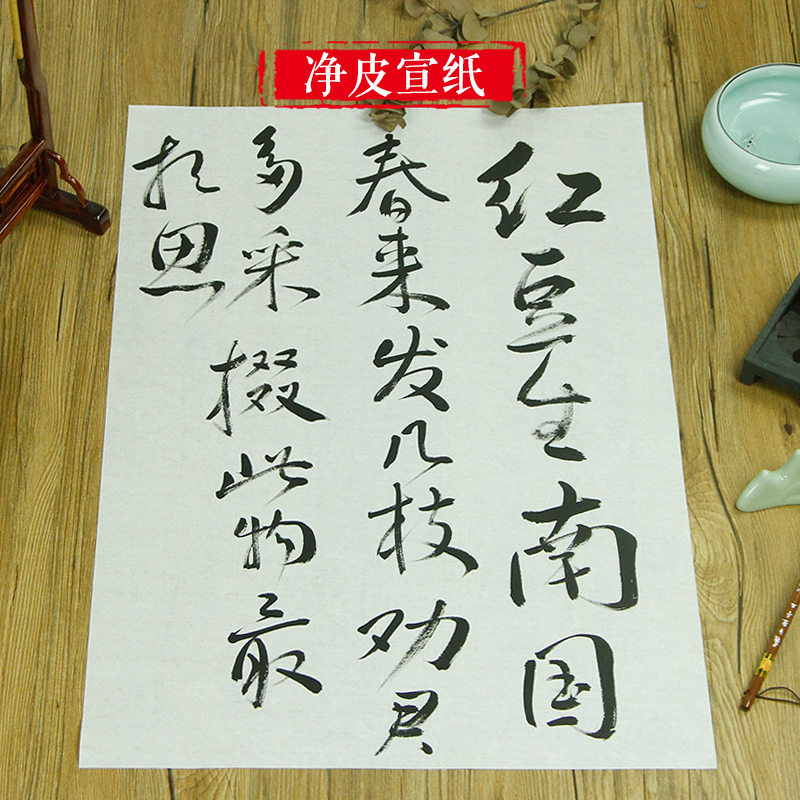 净皮宣纸
红豆生南国
春来发几枝劝君
多采撷此物最
相思